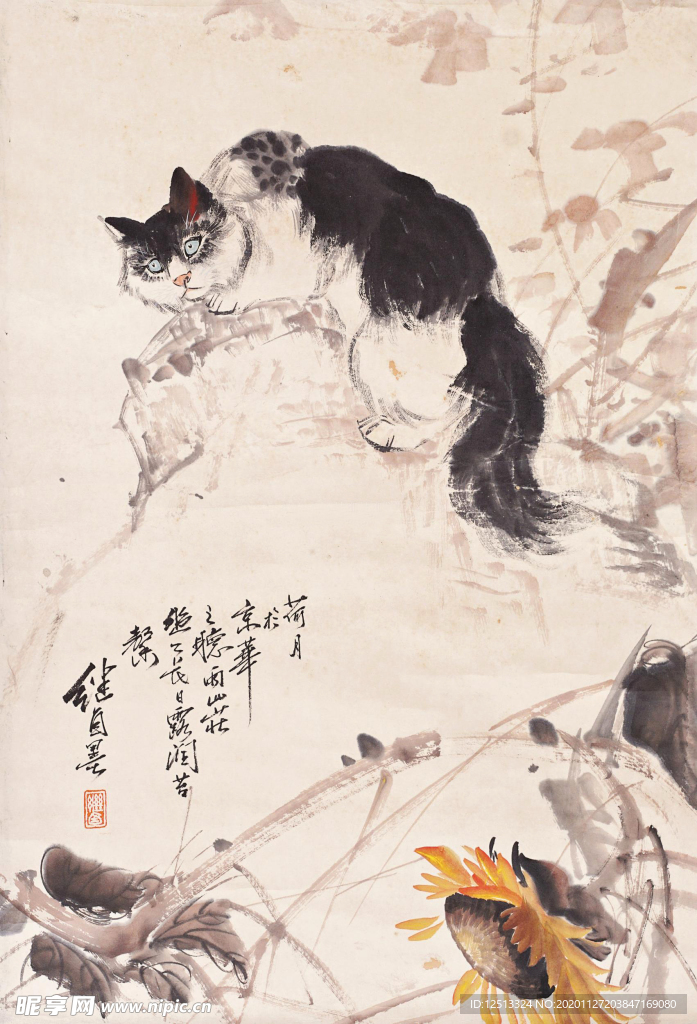 荷月
於
京華
之聽雨山莊
繼之長日露润苔
繼自墨
昵享网 www.nipic.cn
ID:12513324 NO:20201127203847169080